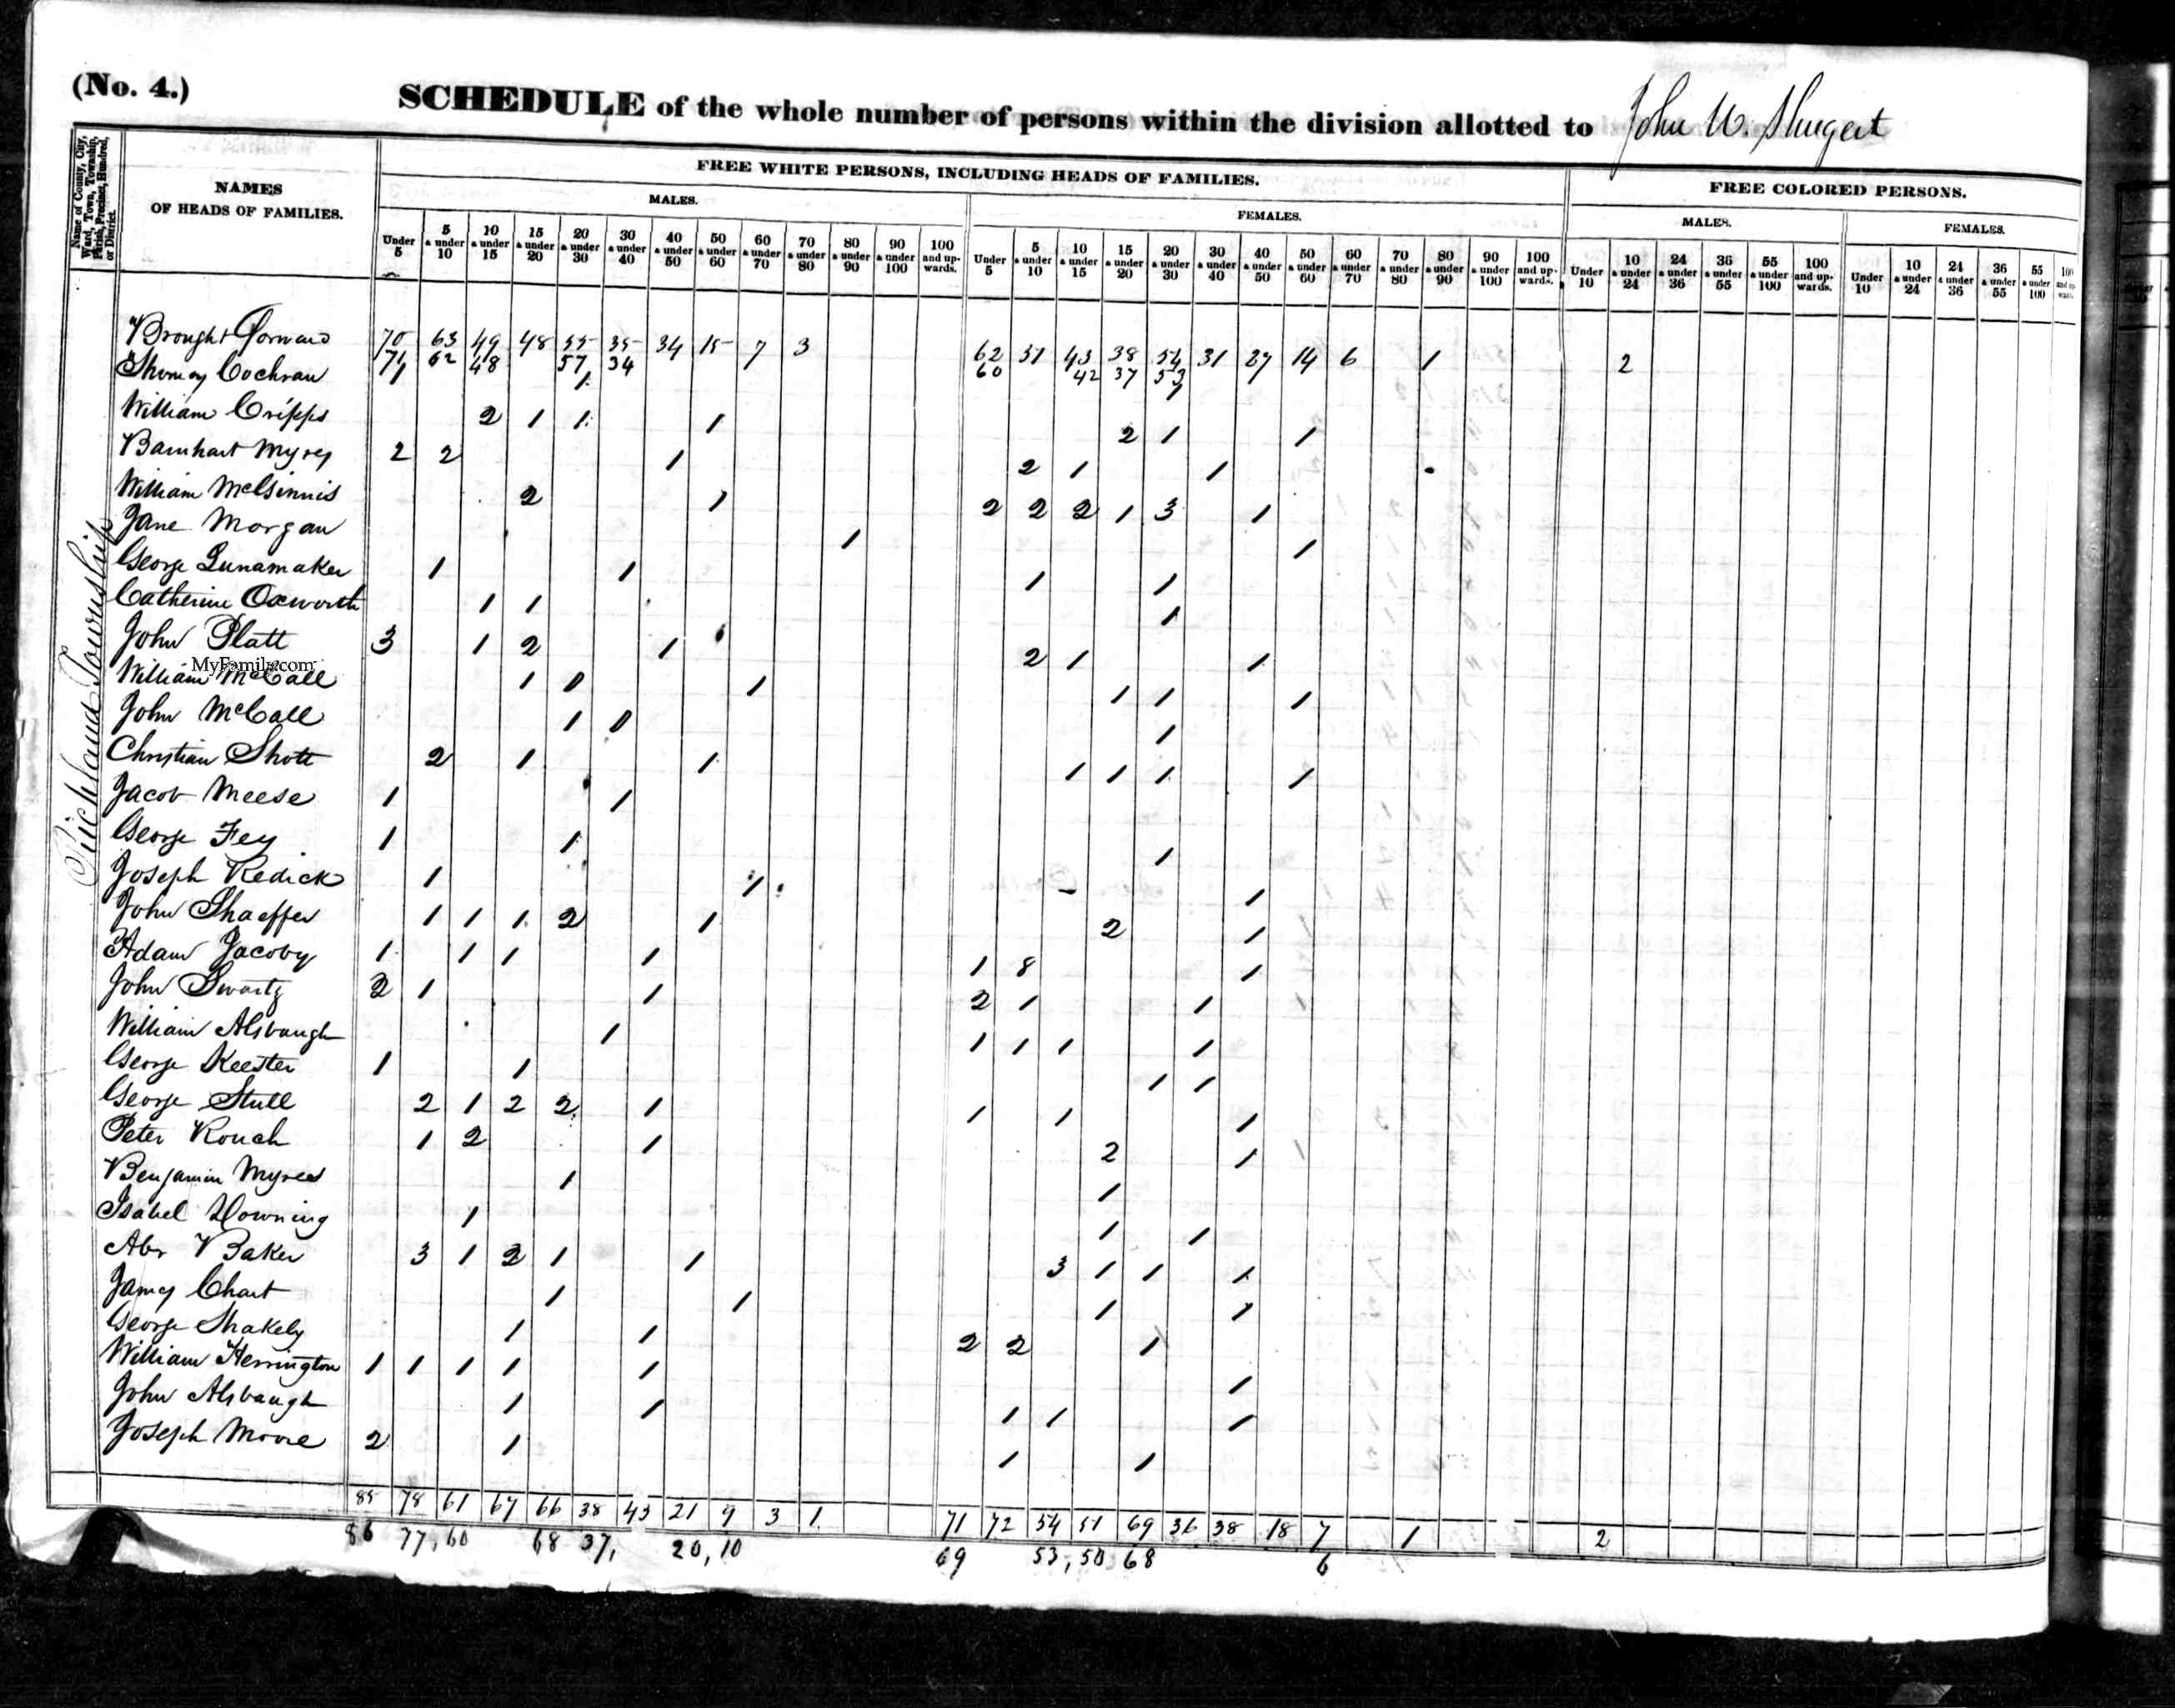 (No. 4.)
SCHEDULE of the whole number of persons within the division allotted to John W. Shugert
Name of County, City, Ward, Town, Township, Parish, Precinct, Hundred, or District.
NAMES OF HEADS OF FAMILIES.
FREE WHITE PERSONS, INCLUDING HEADS OF FAMILIES.
FREE COLORED PERSONS.
MALES.
FEMALES.
MALES.
FEMALES.
Under 5 | 5 & under 10 | 10 & under 15 | 15 & under 20 | 20 & under 30 | 30 & under 40 | 40 & under 50 | 50 & under 60 | 60 & under 70 | 70 & under 80 | 80 & under 90 | 90 & under 100 | 100 and upwards.
Under 5 | 5 & under 10 | 10 & under 15 | 15 & under 20 | 20 & under 30 | 30 & under 40 | 40 & under 50 | 50 & under 60 | 60 & under 70 | 70 & under 80 | 80 & under 90 | 90 & under 100 | 100 and upwards.
Under 10 | 10 & under 24 | 24 & under 36 | 36 & under 55 | 55 & under 100 | 100 and upwards.
Under 10 | 10 & under 24 | 24 & under 36 | 36 & under 55 | 55 & under 100 | 100 and upwards
Richland Township
Brought Forward 70 63 49 48 55 35 34 15 7 3 62 51 43 38 54 31 27 14 6 1 2
71 62 48 57 34 60 42 37 53
Thomas Cochran 1 1 1
William Cripps 2 1 1 1 2 1 1
Barnhart Myres 2 2 1 2 1 1
William McGinnis 2 1 2 2 2 1 3 1
Jane Morgan 1 1
George Lunamaker 1 1 1 1
Catherine Oxworth 1 1 1
John Platt 3 1 2 1 2 1 1
MyFamily.com
William McCall 1 0 1 1 1 1
John McCall 1 0 1
Christian Shott 2 1 1 1 1 1 1
Jacob Meese 1 1
George Fey 1 1 1
Joseph Redick 1 1 1
John Shaeffer 1 1 1 2 1 2 1
Adam Jacoby 1 1 1 1 1 8 1
John Swartz 2 1 1 2 1 1
William Alsbaugh 1 1 1 1 1
George Keester 1 1 1 1
George Stull 2 1 2 2 1 1 1 1
Peter Rouch 1 2 1 2 1
Benjamin Myres 1 1
Isabel Downing 1 1 1
Abr Baker 3 1 2 1 1 3 1 1 1
James Chart 1 1 1 1
George Shakely 1 1 2 2 1
William Herrington 1 1 1 1 1 1
John Alsbaugh 1 1 1 1 1
Joseph Moore 2 1 1 1
85 78 61 67 66 38 43 21 9 3 1 71 72 54 51 69 36 38 18 7 1 2
86 77, 60 68 37, 20, 10 69 53, 50 68 6